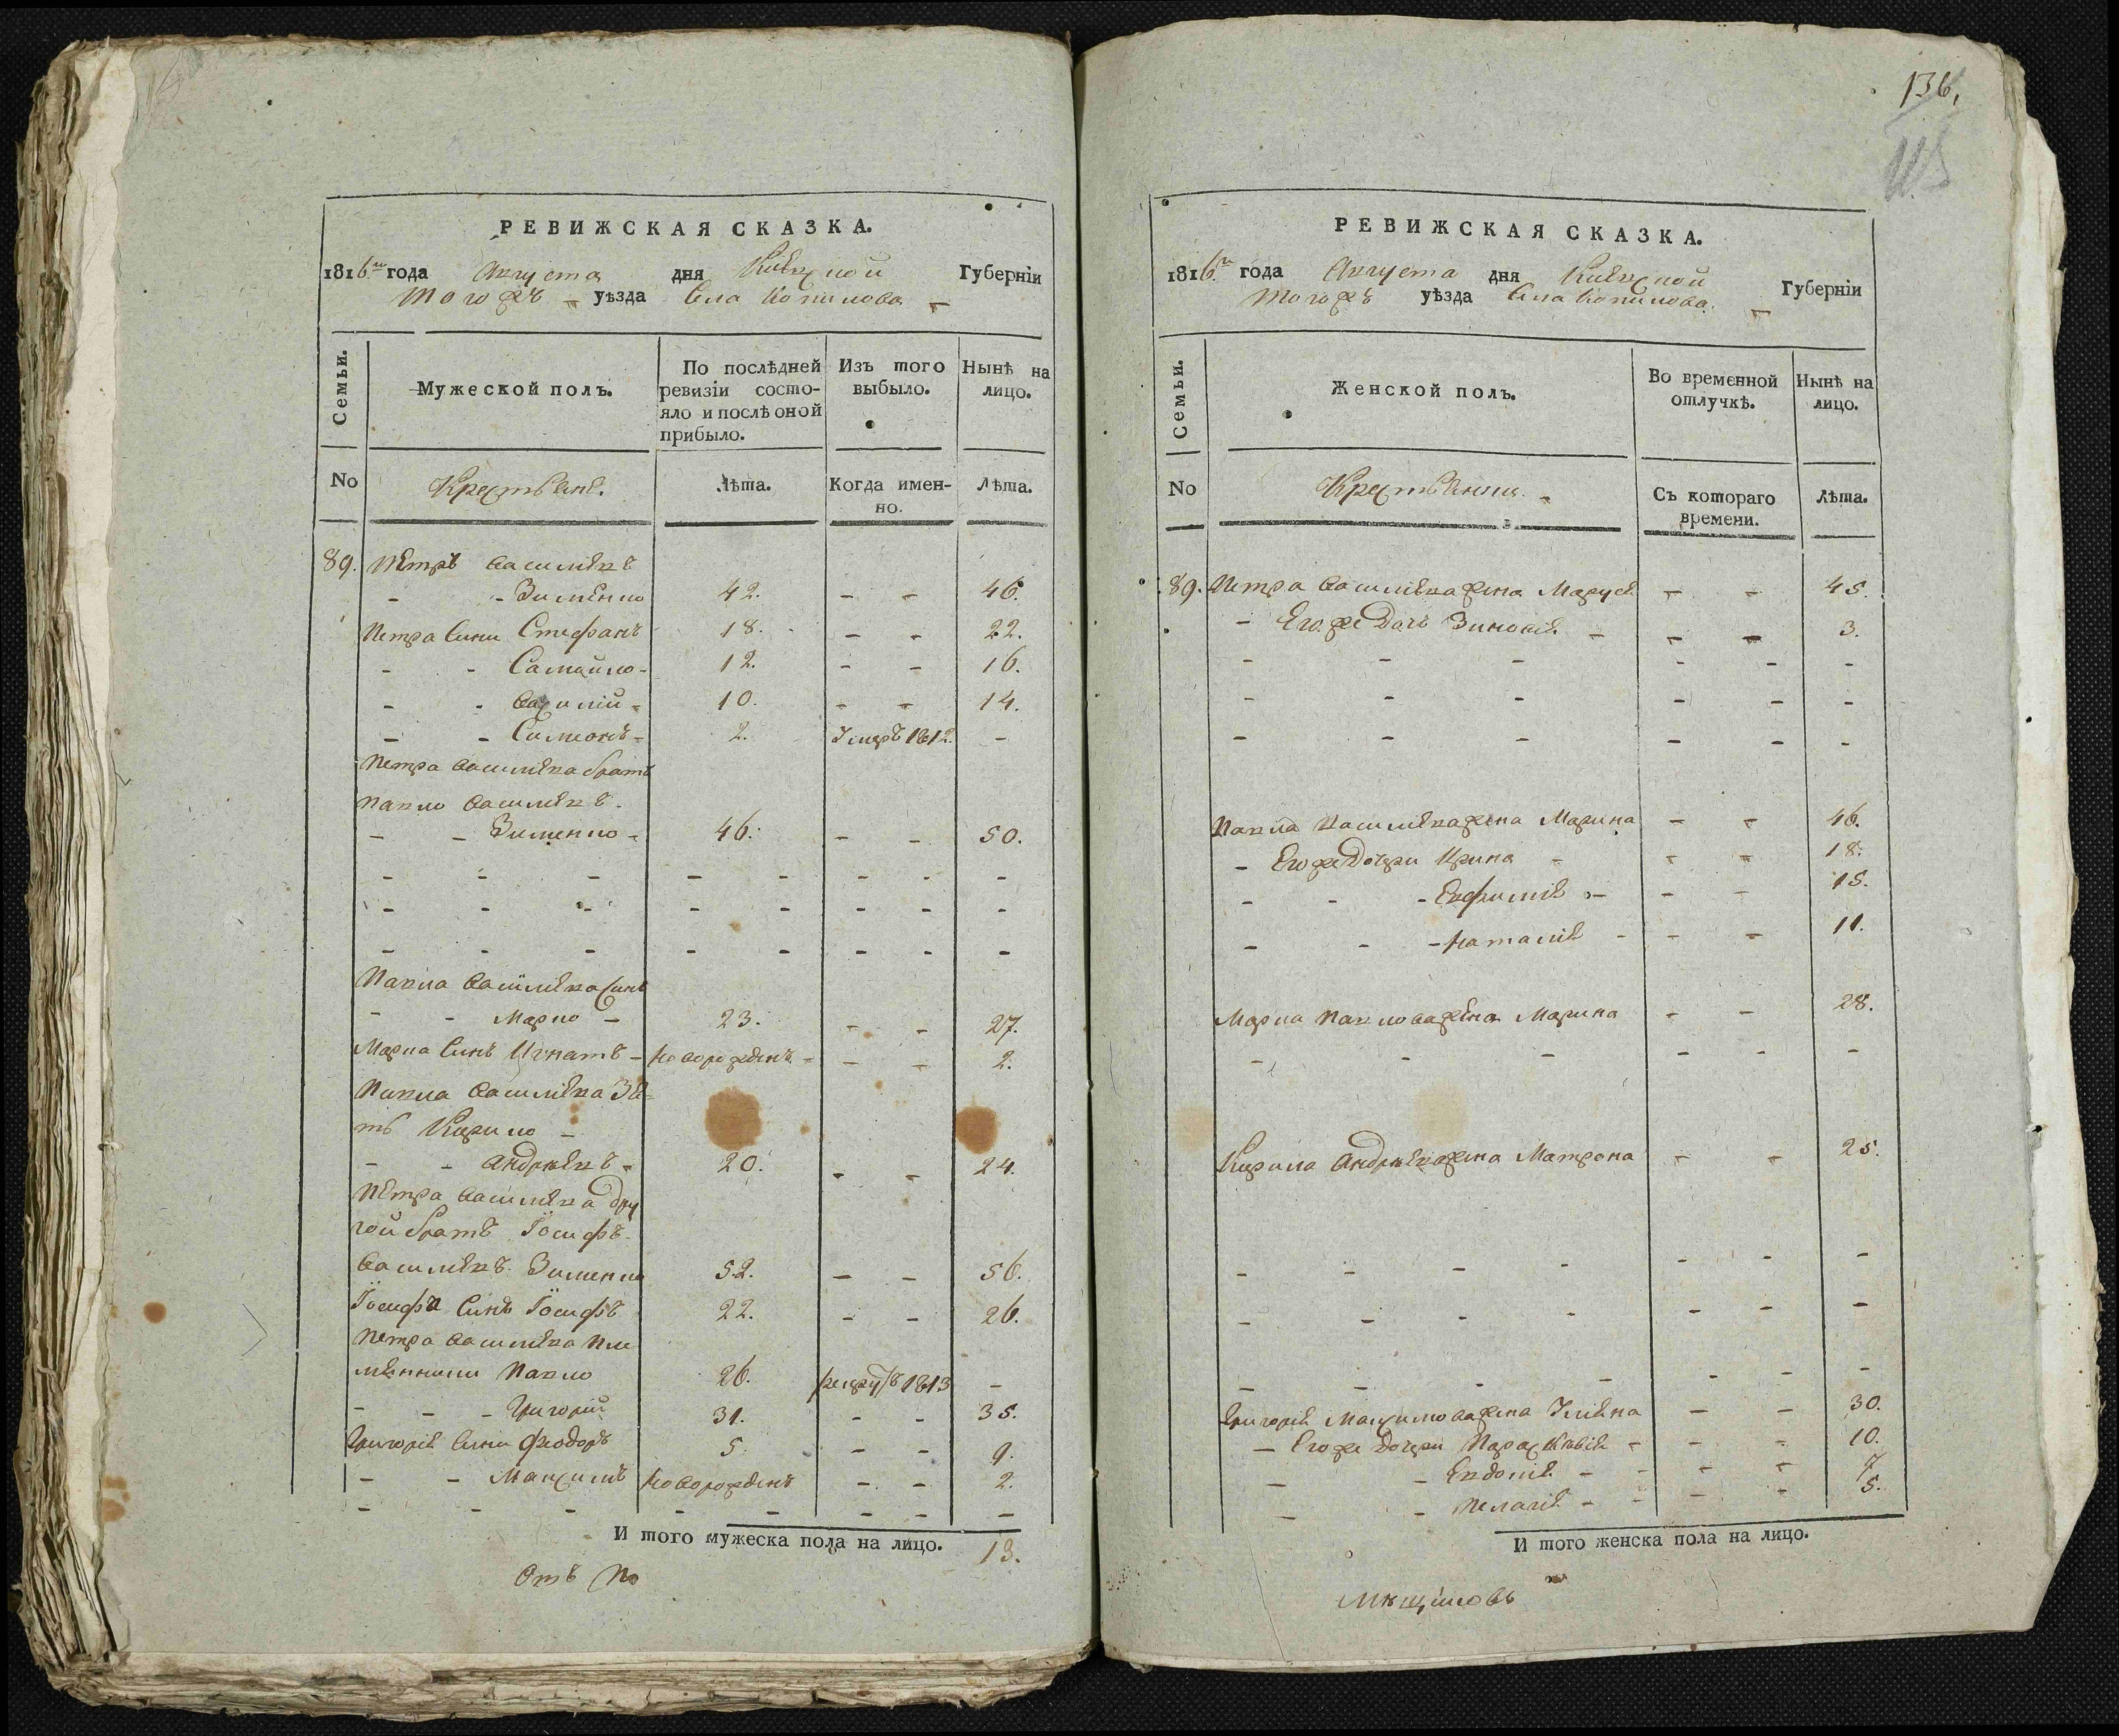 РЕВИЖСКАЯ СКАЗКА.
1816.го года Августа дня Киевской Губерніи
тогожъ уѣзда Села Копилова
Семьи.
Мужеской полъ.
По послѣдней ревизіи состо-
яло и послѣ оной
прибыло.
Изъ того
выбыло.
Нынѣ на
лицо.
No
Крестьяне.
Лѣта.
Когда имен-
но.
Лѣта.
89. Петръ Василіевъ
- - Зименко 42. - - 46.
Петра Сини Стефанъ 18. - - 22.
- - Самойло - 12. - - 16.
- - Василій - 10. - - 14.
- - Симеонъ - 2. Умеръ 1812. -
Петра Василіева братъ
Павло Василіевъ.
- - Зименко - 46. - - 50.
- - - - - - - -
- - - - - - - -
- - - - - - - -
Павла Василіева Синъ
- - Марко - 23. - - 27.
Марка Синъ Игнатъ - новорожденъ - - - 2.
Павла Василіева Зя-
ть Кирило -
- - Андреевъ - 20. - - 24.
Петра Василіева дру
гой братъ Іосифъ
Василіевъ Зименко 52. - - 56.
Іосифа Синъ Іосифъ 22. - - 26.
Петра Василіева Пле
мянники Павло 26. рекрутъ 1813 -
- - - Григорій 31. - - 35.
Григорія Сини Феодоръ 5. - - 9.
- - Максимъ новорожденъ - - 2.
- - - - - - - -
И того мужеска пола на лицо. 13.
136.
РЕВИЖСКАЯ СКАЗКА.
1816.го года Августа дня Киевской Губерніи
тогожъ уѣзда Села Копилова.
Семьи.
Женской полъ.
Во временной
отлучкѣ.
Нынѣ на
лицо.
No
Крестьянки.
Съ котораго
времени.
Лѣта.
89. Петра Василіева жена Маруся - - 45.
- Его же Дочь Зиновія - - - 3.
- - - - - -
- - - - - -
- - - - - -
Павла Василіева жена Марина - - 46.
- Его же Дочери Ирина - - - 18.
- - - Евфимія - - - 15.
- - - Наталія - - - 11.
Марка Павлова жена Марина - - 28.
- - - - - -
Кирила Андреева жена Матрона - - 25.
- - - - - - -
- - - - - - -
- - - - - - -
Григорія Максимова жена Уліяна - - 30.
- Его же дочери Параскевія - - - 10.
- - Евдокія - - - - 7.
- - Пелагія - - - - 5.
И того женска пола на лицо.